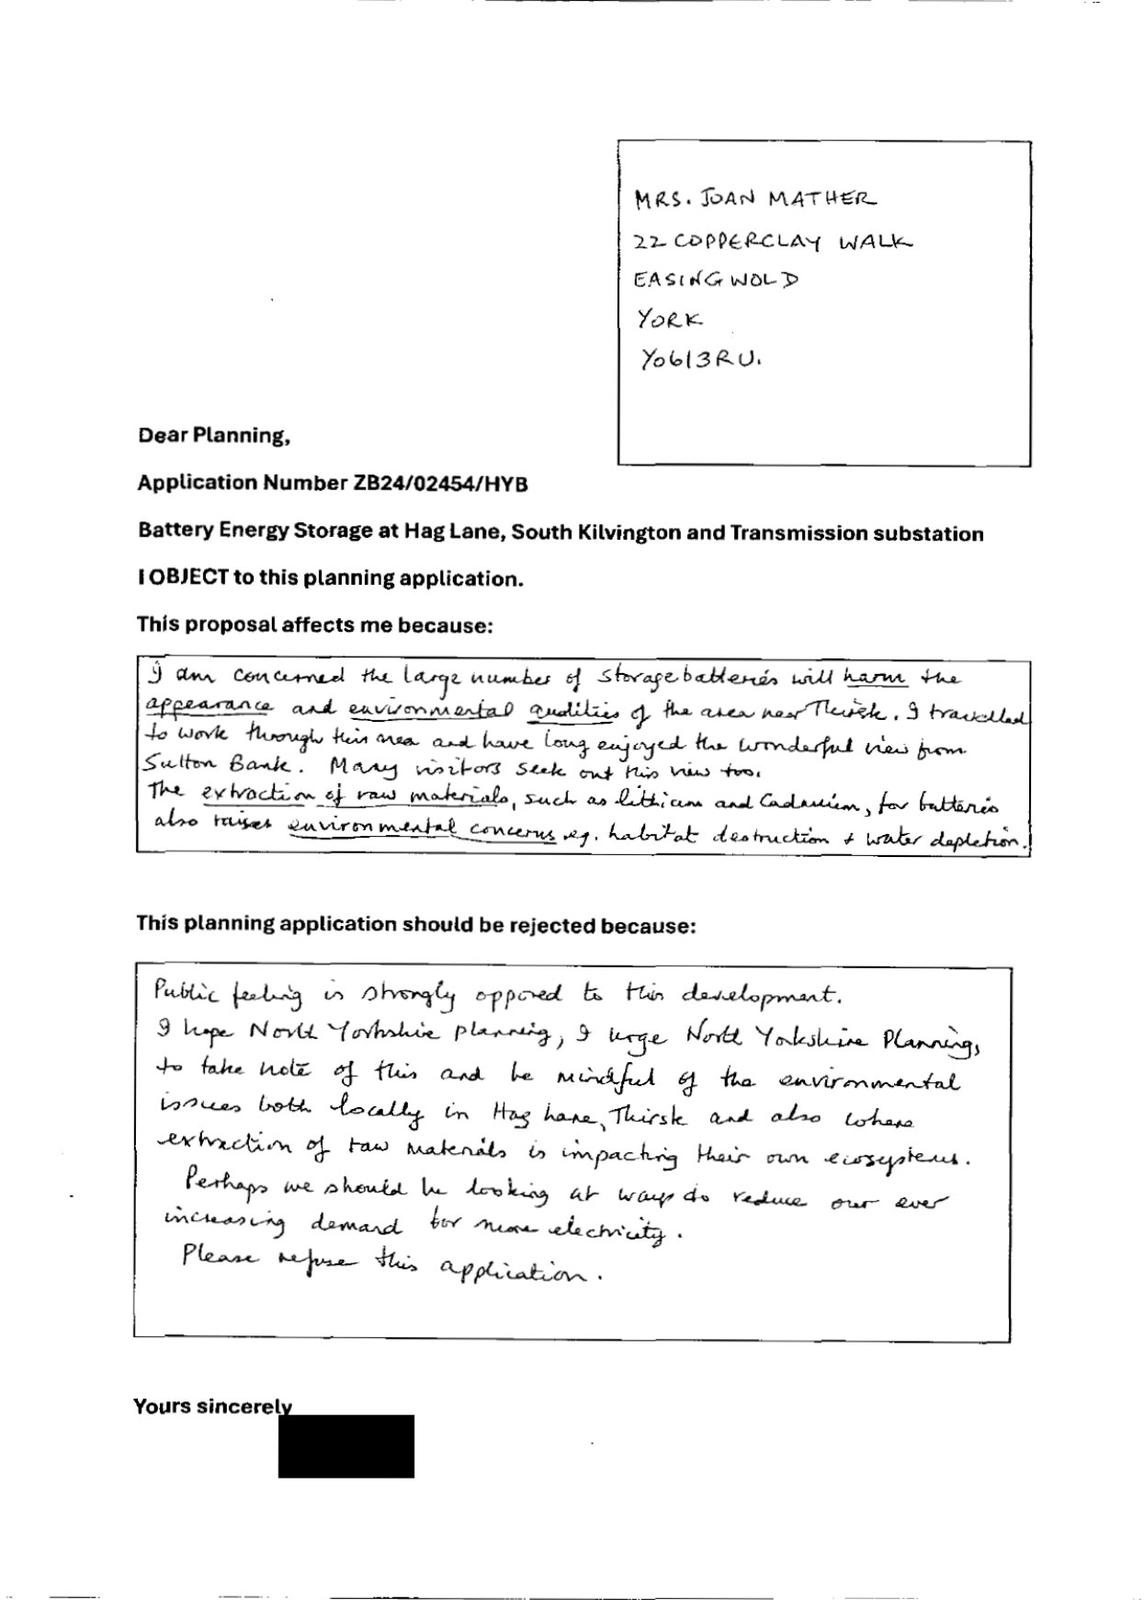 MRS. JOAN MATHER
22 COPPERCLAY WALK
EASINGWOLD
YORK
YO61 3RU.
Dear Planning,
Application Number ZB24/02454/HYB
Battery Energy Storage at Hag Lane, South Kilvington and Transmission substation
I OBJECT to this planning application.
This proposal affects me because:
I am concerned the large number of storage batteries will harm the
appearance and environmental qualities of the area near Thirsk. I travelled
to work through this area and have long enjoyed the wonderful view from
Sutton Bank. Many visitors seek out this view too.
The extraction of raw materials, such as lithium and Cadmium, for batteries
also raises environmental concerns eg. habitat destruction + water depletion.
This planning application should be rejected because:
Public feeling is strongly opposed to this development.
I hope North Yorkshire planning, I urge North Yorkshire Planning,
to take note of this and be mindful of the environmental
issues both locally in Hag Lane, Thirsk and also where
extraction of raw materials is impacting their own ecosystems.
Perhaps we should be looking at ways to reduce our ever
increasing demand for more electricity.
Please refuse this application.
Yours sincerely